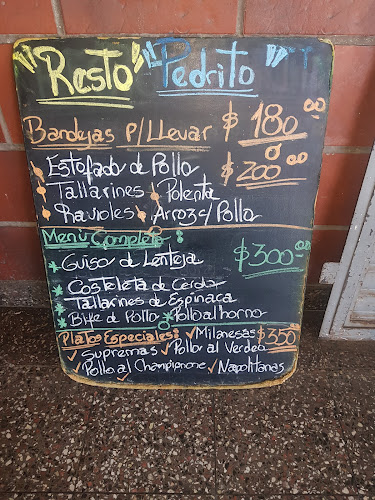 "Resto" "Pedrito"
Bandejas P/Llevar $ 180.00
ó
Estofado de Pollo $ 200.00
Tallarines Polenta
Ravioles Arroz c/ Pollo
Menú Completo:
Guiso de Lenteja $300.00
Costeleta de Cerdo
Tallarines de Espinaca
Bife de Pollo Pollo al horno
Platos Especiales: Milanesas $350
Supremas Pollo al Verdeo
Pollo al Champignone Napolitanas